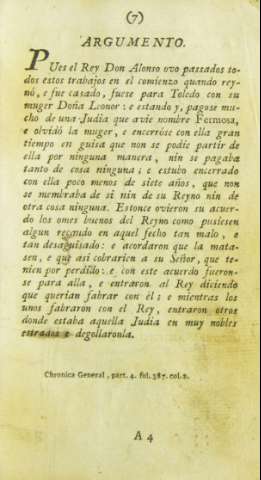 (7)
ARGUMENTO.
PUes el Rey Don Alonso ovo passados to-
dos estos trabajos en el comienzo quando rey-
nó, e fue casado, fuese para Toledo con su
muger Doña Leonor: e estando y, pagose mu-
cho de una Judia que avie nombre Fermosa,
e olvidó la muger, e encerróse con ella gran
tiempo en guisa que non se podie partir de
ella por ninguna manera, nin se pagaba
tanto de cosa ninguna; e estubo encerrado
con ella poco menos de siete años, que non
se membraba de sí nin de su Reyno nin de
otra cosa ninguna. Estonce ovieron su acuer-
do los omes buenos del Reyno como pusiesen
algun recaudo en aquel fecho tan malo, e
tan desaguisado: e acordaron que la mata-
sen, e que asi cobrarien a su Señor, que te-
nien por perdido: e con este acuerdo fueron-
se para alla, e entraron al Rey diciendo
que querian fabrar con él; e mientras los
unos fabraron con el Rey, entraron otros
donde estaba aquella Judia en muy nobles
estrados e degollaronla.
Chronica General, part. 4. fol. 387. col. 2.
A 4